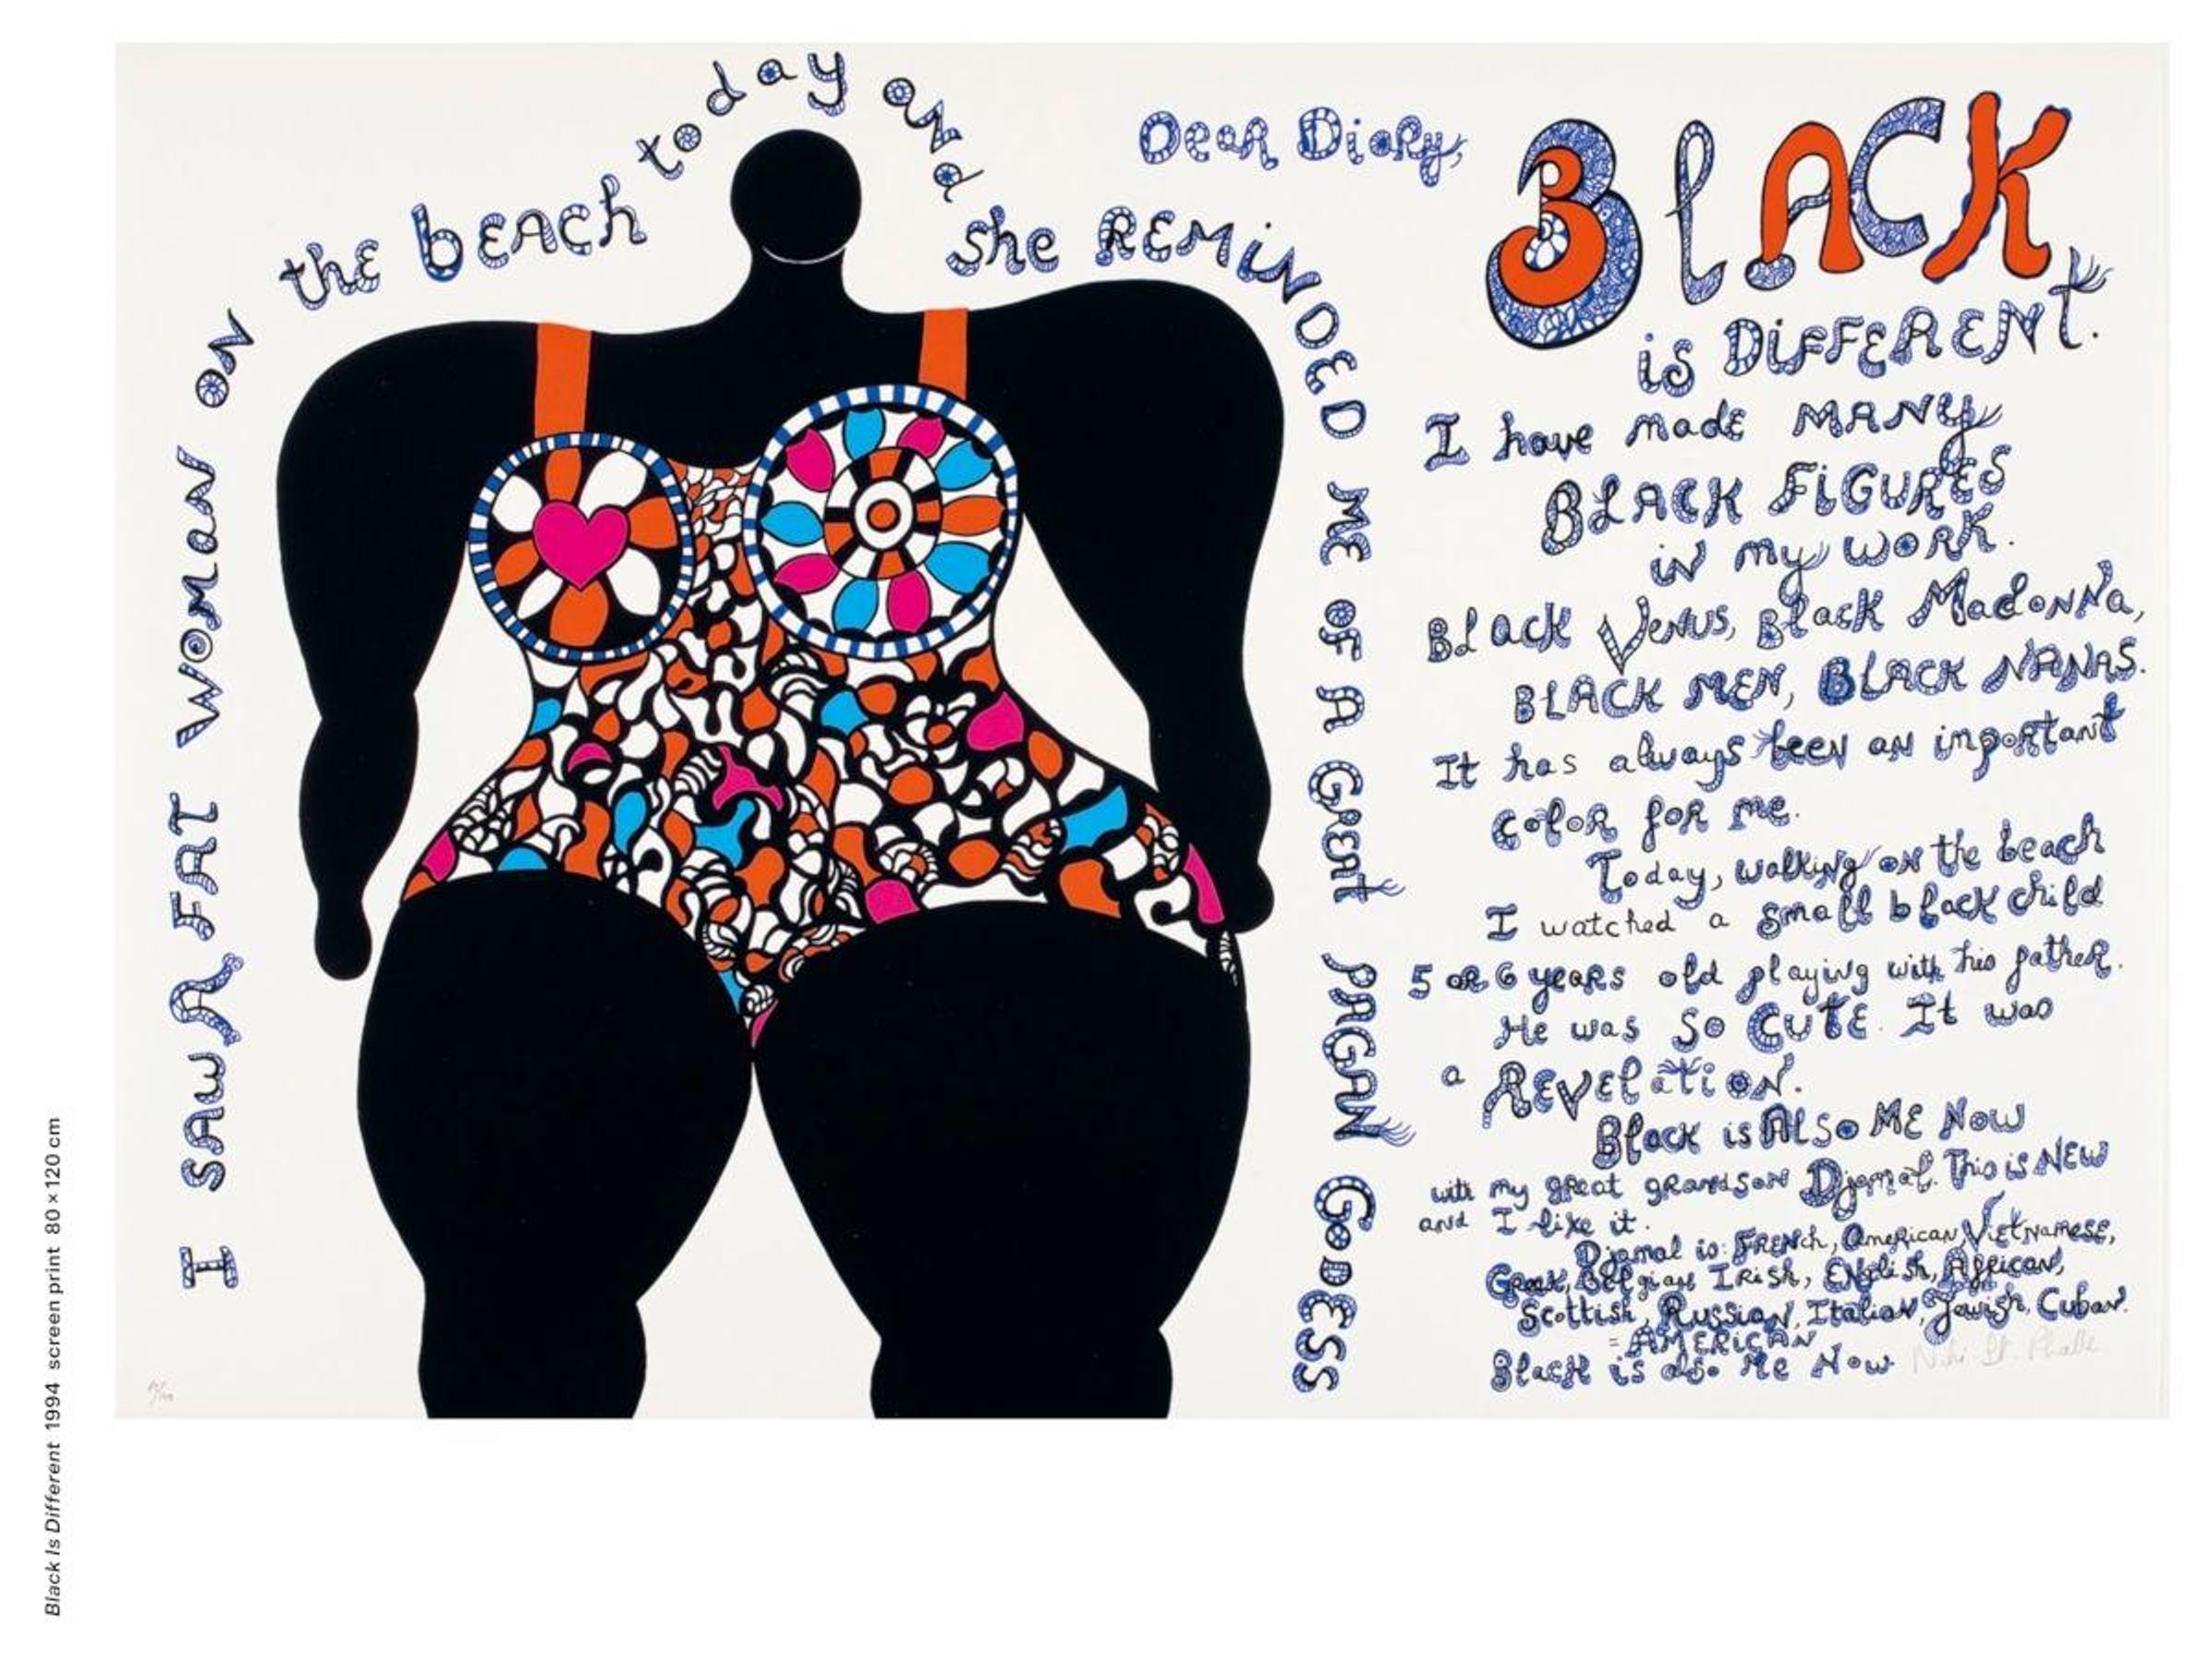 I SAW A FAT WOMAN ON the bEACh today and she REMiNDED ME OF A GREAT PAGAN GODESS
Dear Diary,
BlACK
is DiFFERENt.
I have made MANy
BLACK FiGURES
in my WORK.
Black Venus, Black Madonna,
BLACK MEN, BLACK NANAS.
It has always been an important
color for me.
Today, walking on the beach
I watched a small black child
5 or 6 years old playing with his father.
He was So CUTE. It was
a REVElation.
Black is AlSo ME Now
with my great grandson Djamal. This is NEW
and I like it.
Djamal is: FRENch, American, Vietnamese,
Greek, Belgian, Irish, English, African,
Scottish, Russian, Italian, Jewish, Cuban.
= AMERiCAN
Black is also Me Now
Niki St. Phalle
Black Is Different 1994 screen print 80 × 120 cm